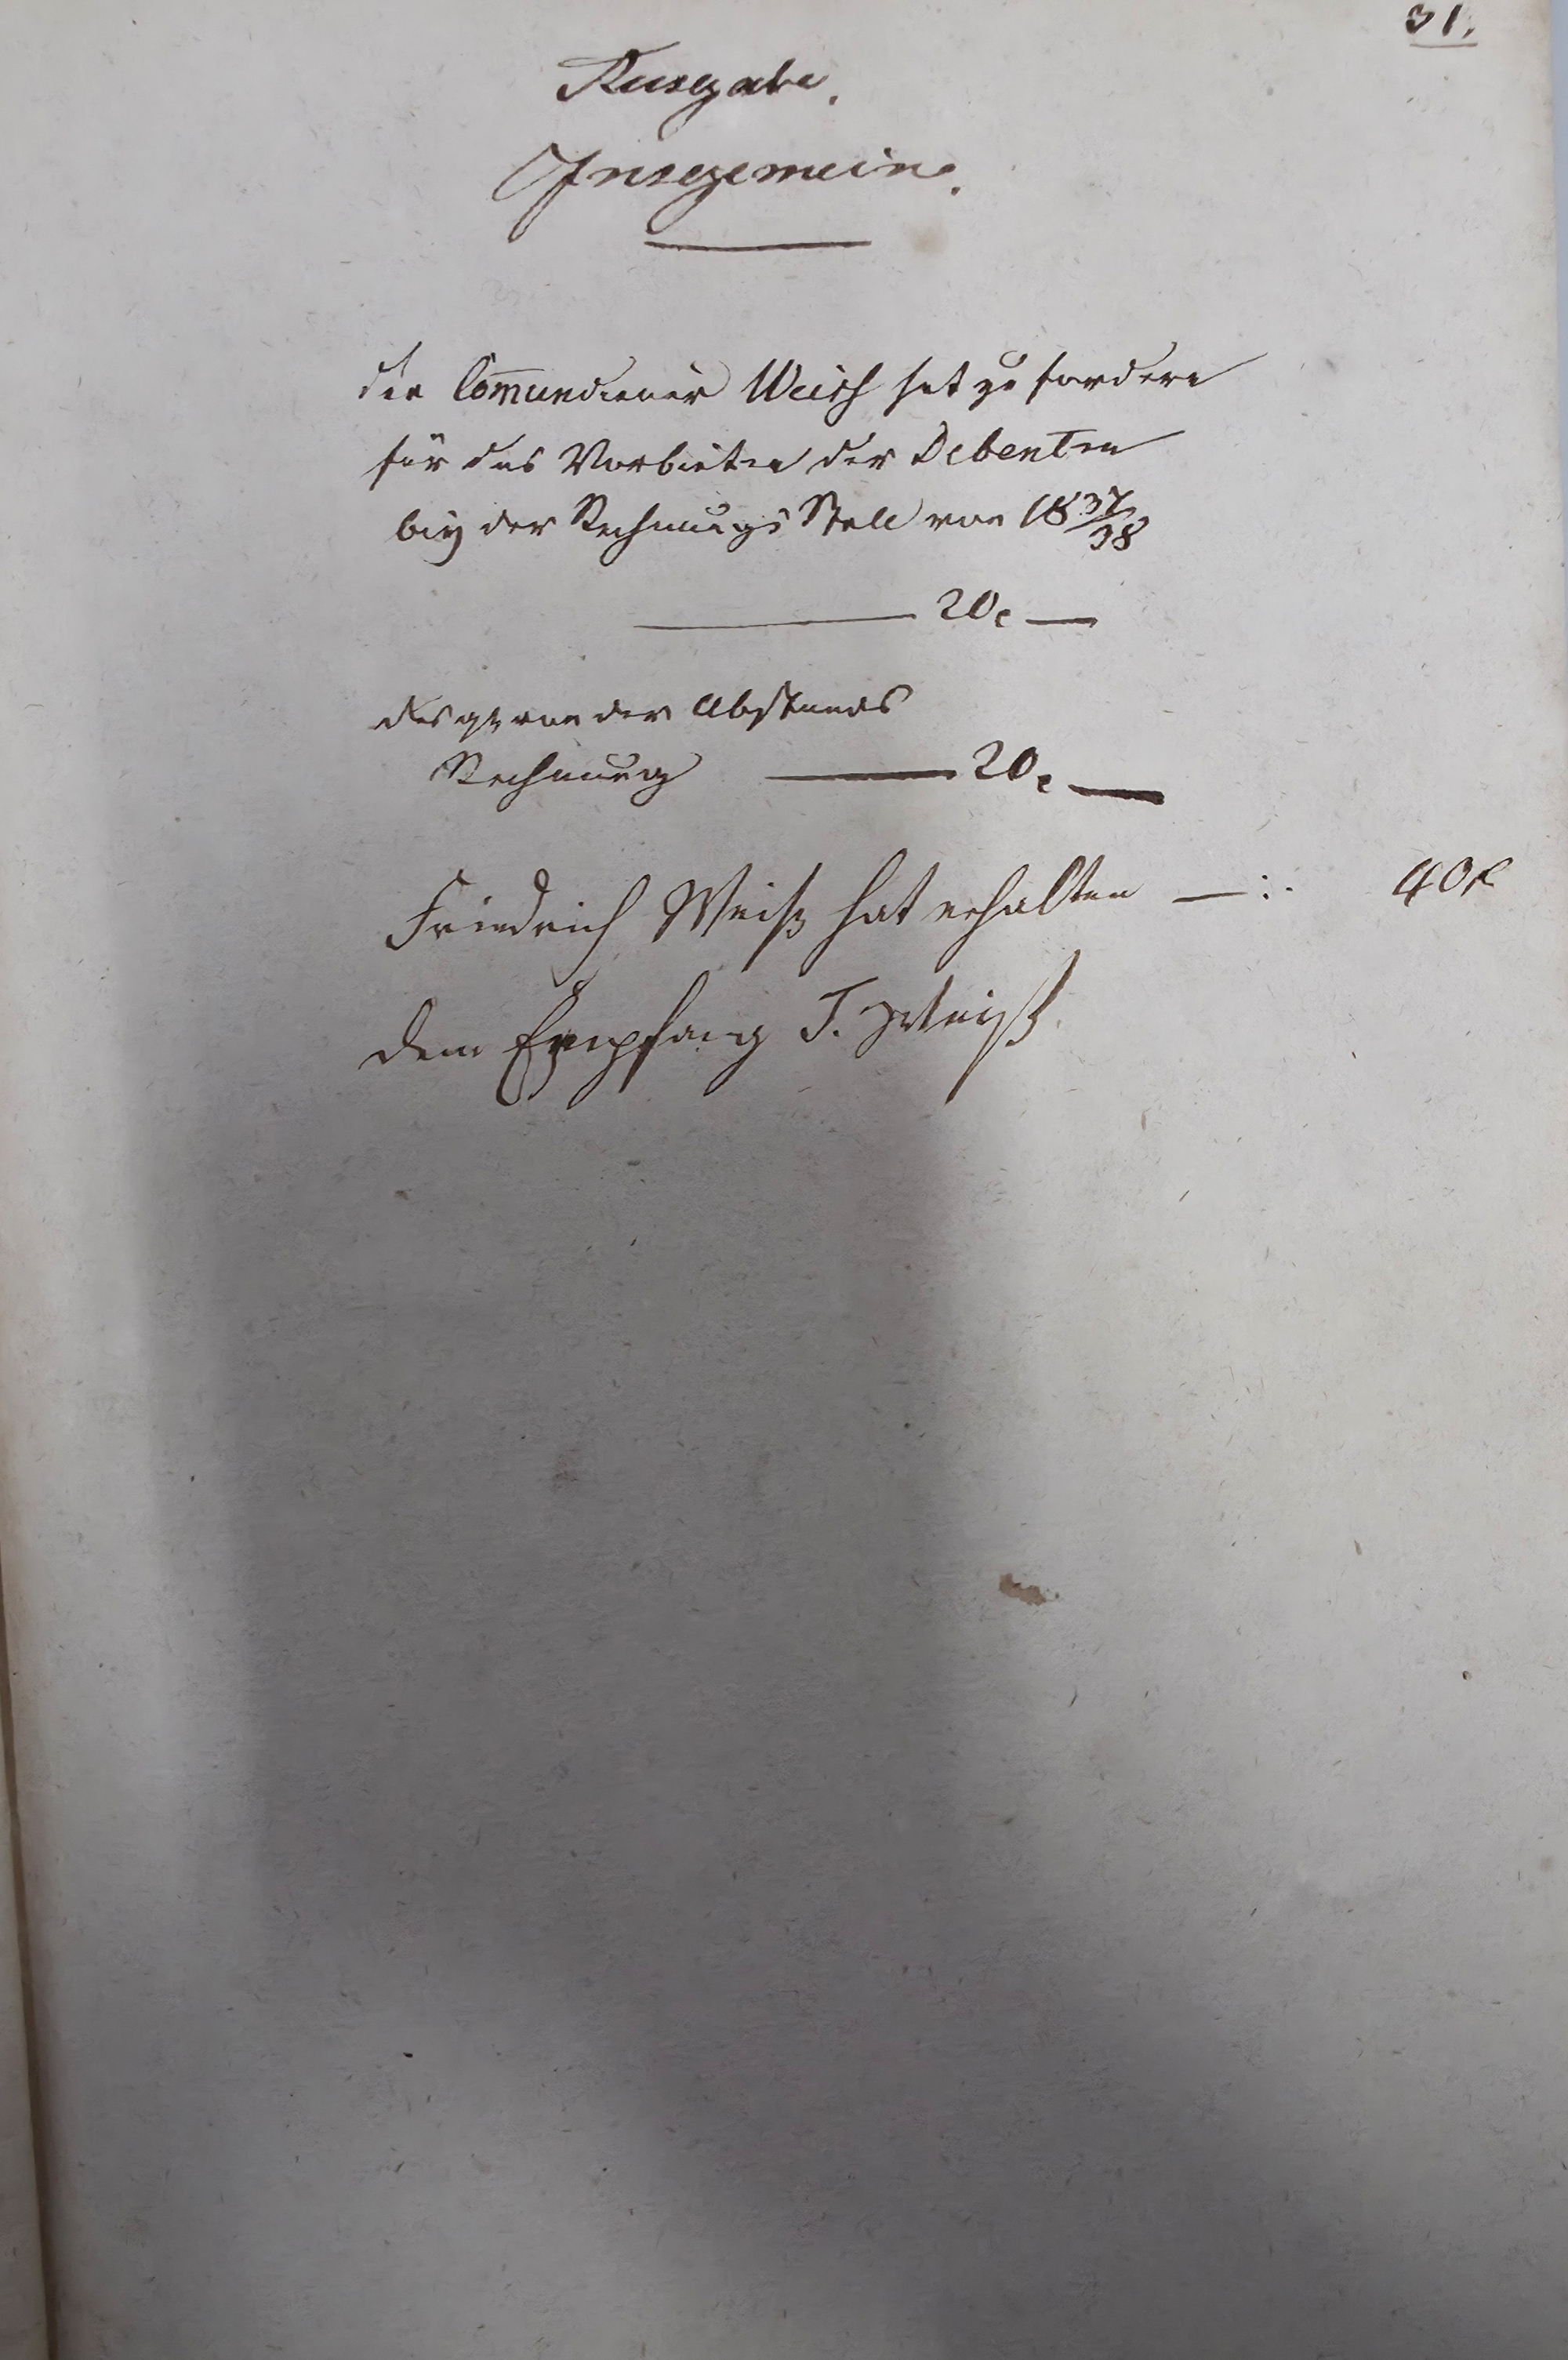 31.
Ausgabe.
Insgemein.
der Com̄undiener Weiss hat zu fordern
für das Vorbieten der Debenten
bey der Rechnungs Stell von 1837/38
20 x
desgl. von der Abstands
Rechnung 20 x
Friedrich Weiß hat erhalten —:. 40 x
dem Empfang T. Weiß